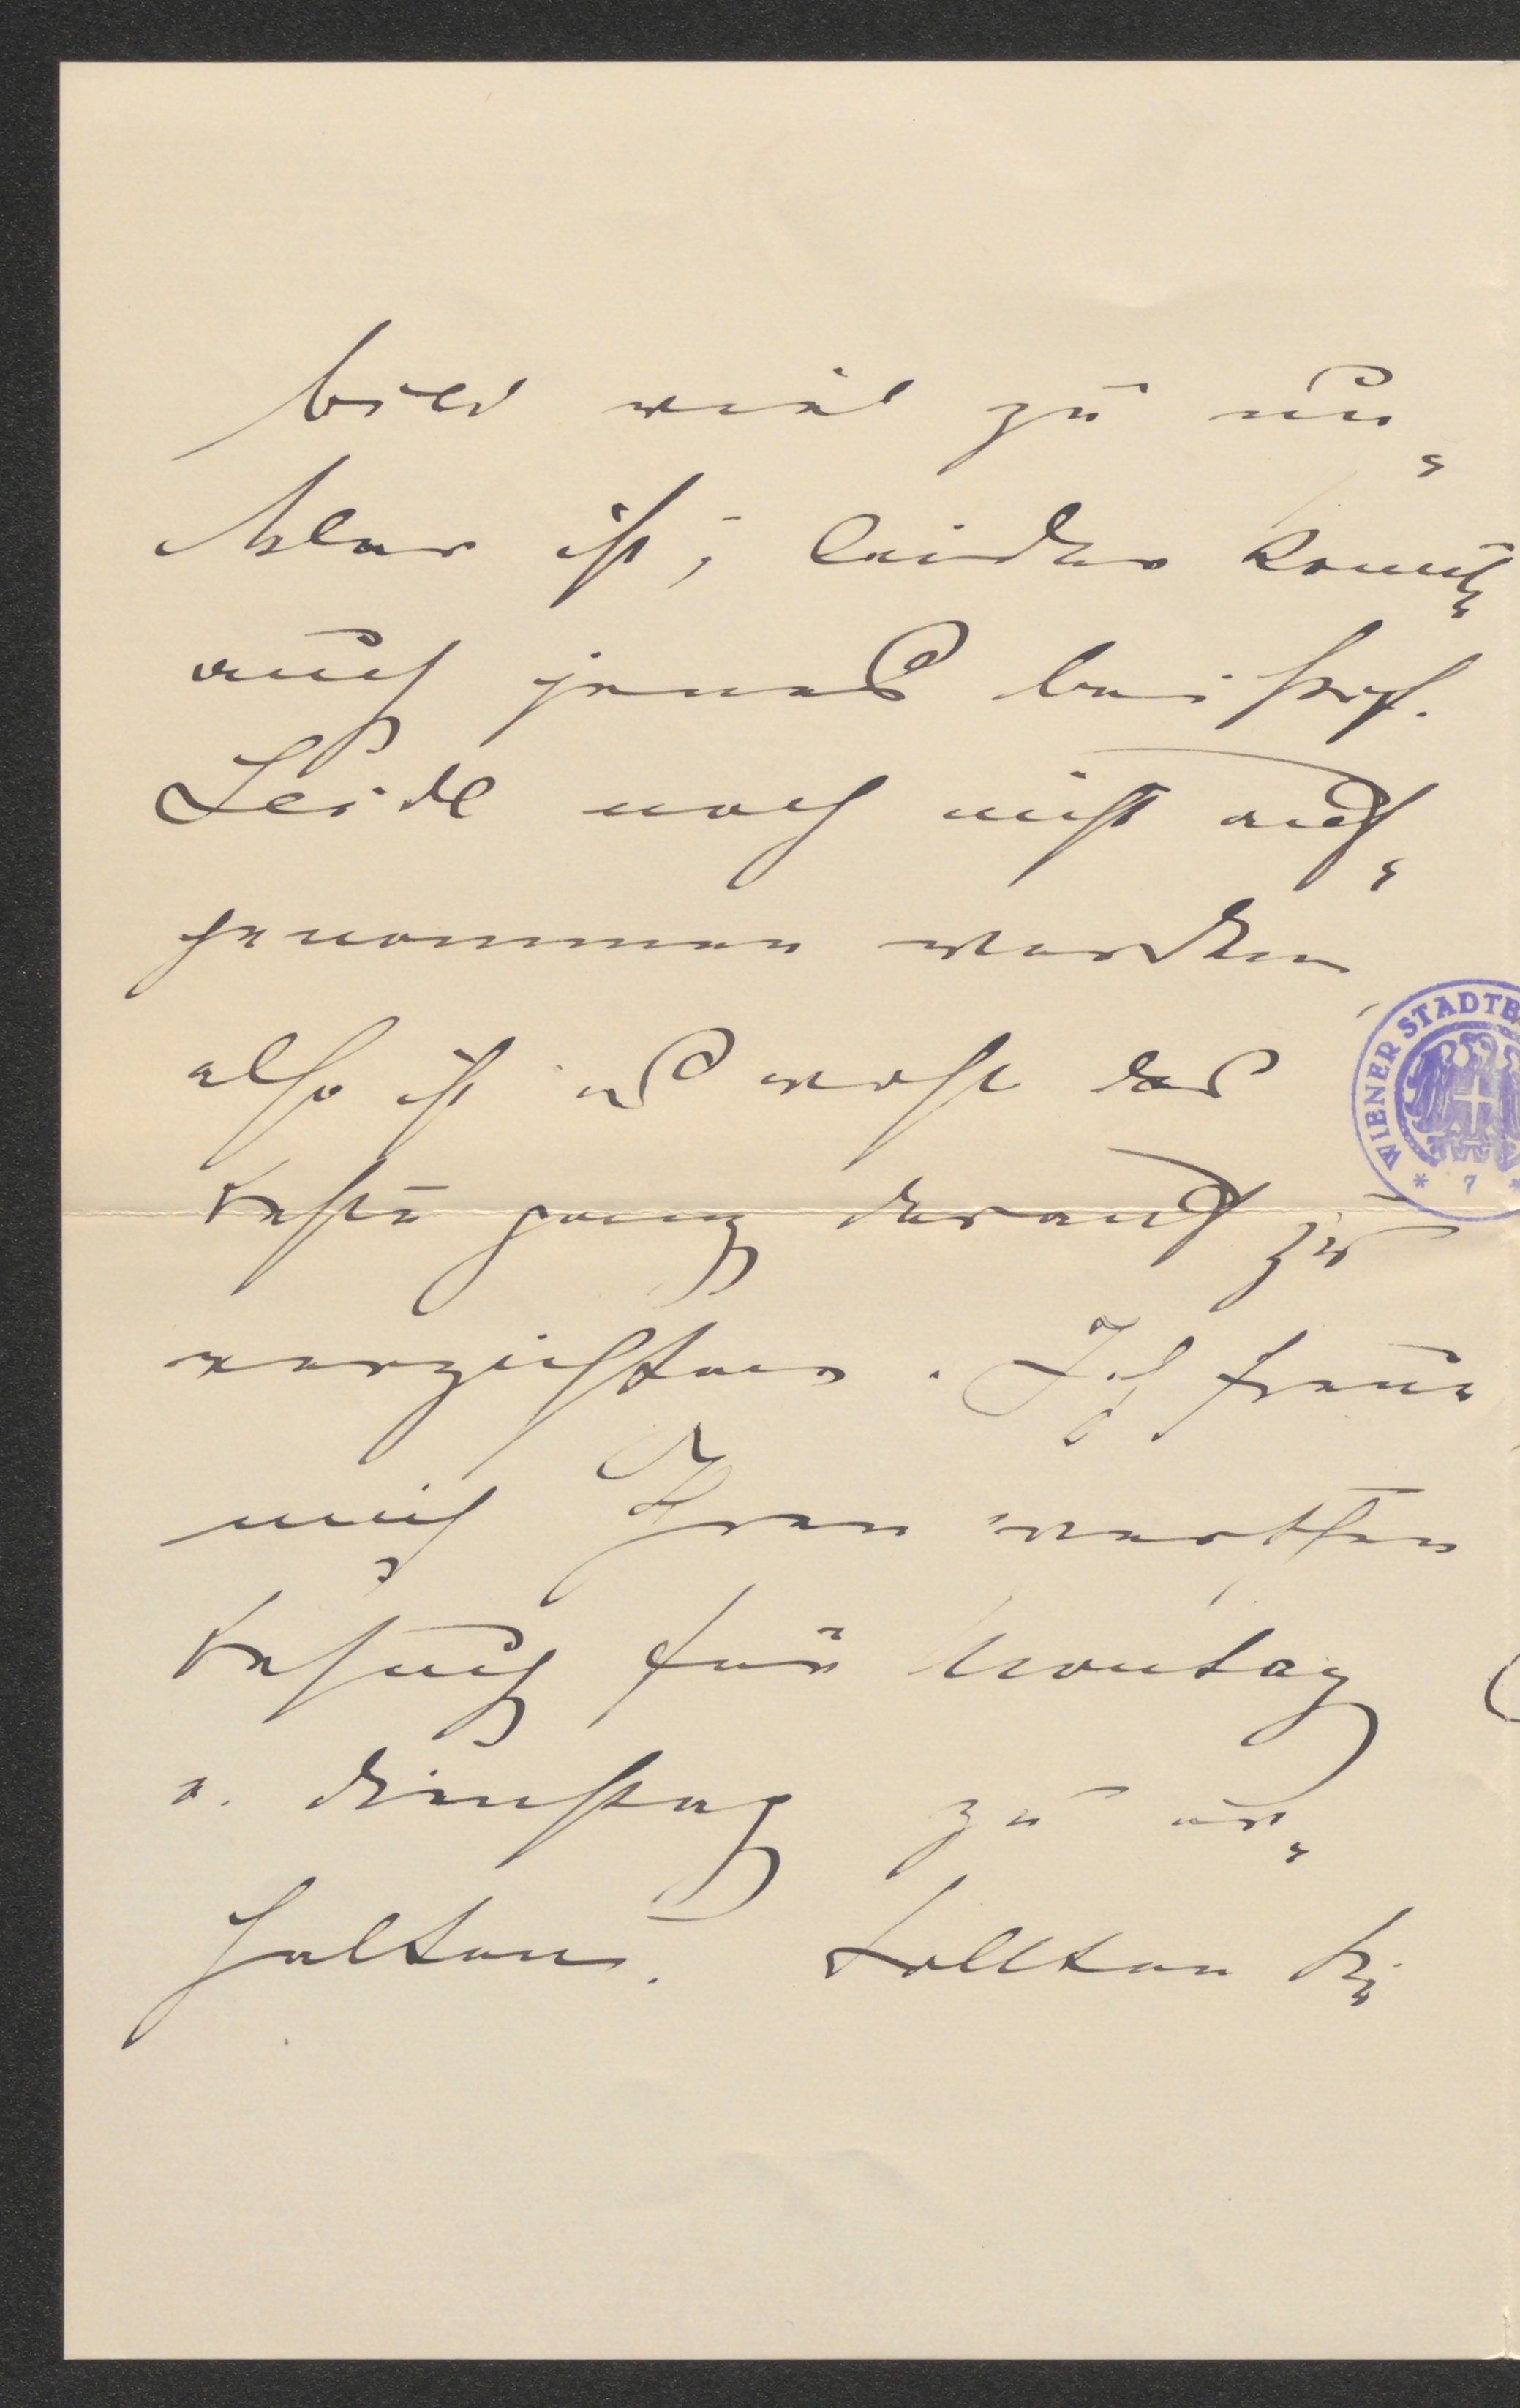 bild viel zu un„
klar ist; leider konnt„
auch jenes bei Prof.
Seidl noch nicht auf„
genommen werden,
also ist es wohl das
Beste ganz darauf zu
verzichten. Ich freue
mich Ihren werthen
Besuch für Montag
o. Dienstag zu er„
halten. Sollten Sie
WIENER STADTB
* 7 *